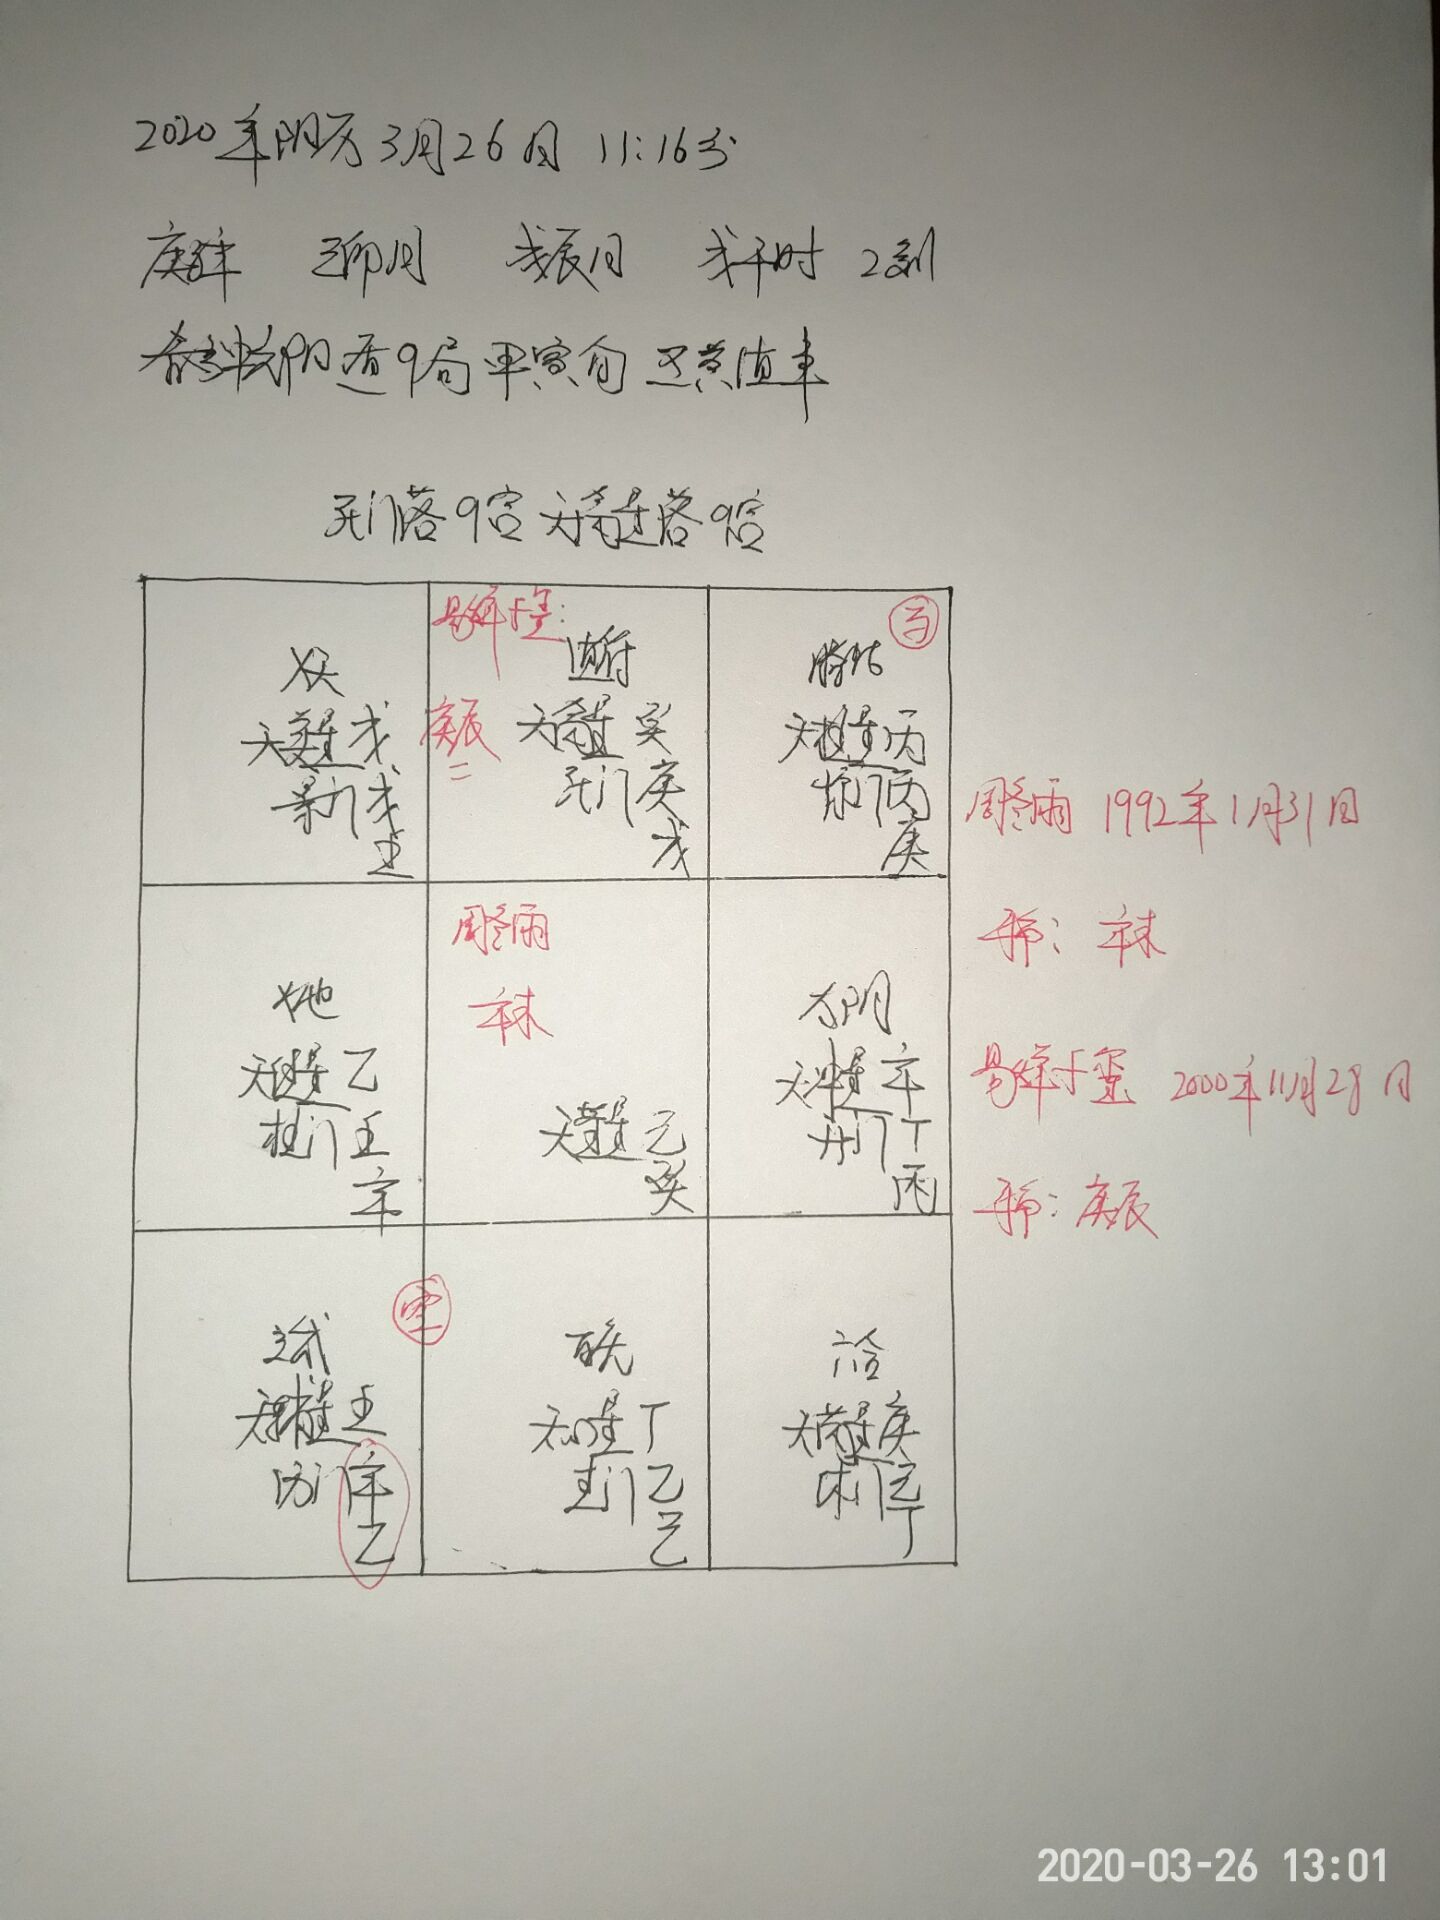 2020年阳历3月26日 11:16分
庚子年 己卯月 戊辰日 戊午时 2刻
春分 阳遁9局 甲寅旬 癸 值
死门落9宫 天禽星落9宫
九天
天英星 戊
景门 戊
壬
易烊千玺:
庚辰
值符
天禽星 癸
死门 庚
戊
马
腾蛇
天柱星 丙
惊门 丙
庚
周冬雨 1992年1月31日
年命: 辛未
易烊千玺 2000年11月28日
年命: 庚辰
九地
乙
杜门 壬
辛
周冬雨
辛未
己
癸
太阴
辛
开门 丁
丙
空
玄武
天辅星 壬
伤门 辛
乙
白虎
丁
生门 乙
己
六合
庚
休门 己
丁
2020-03-26 13:01